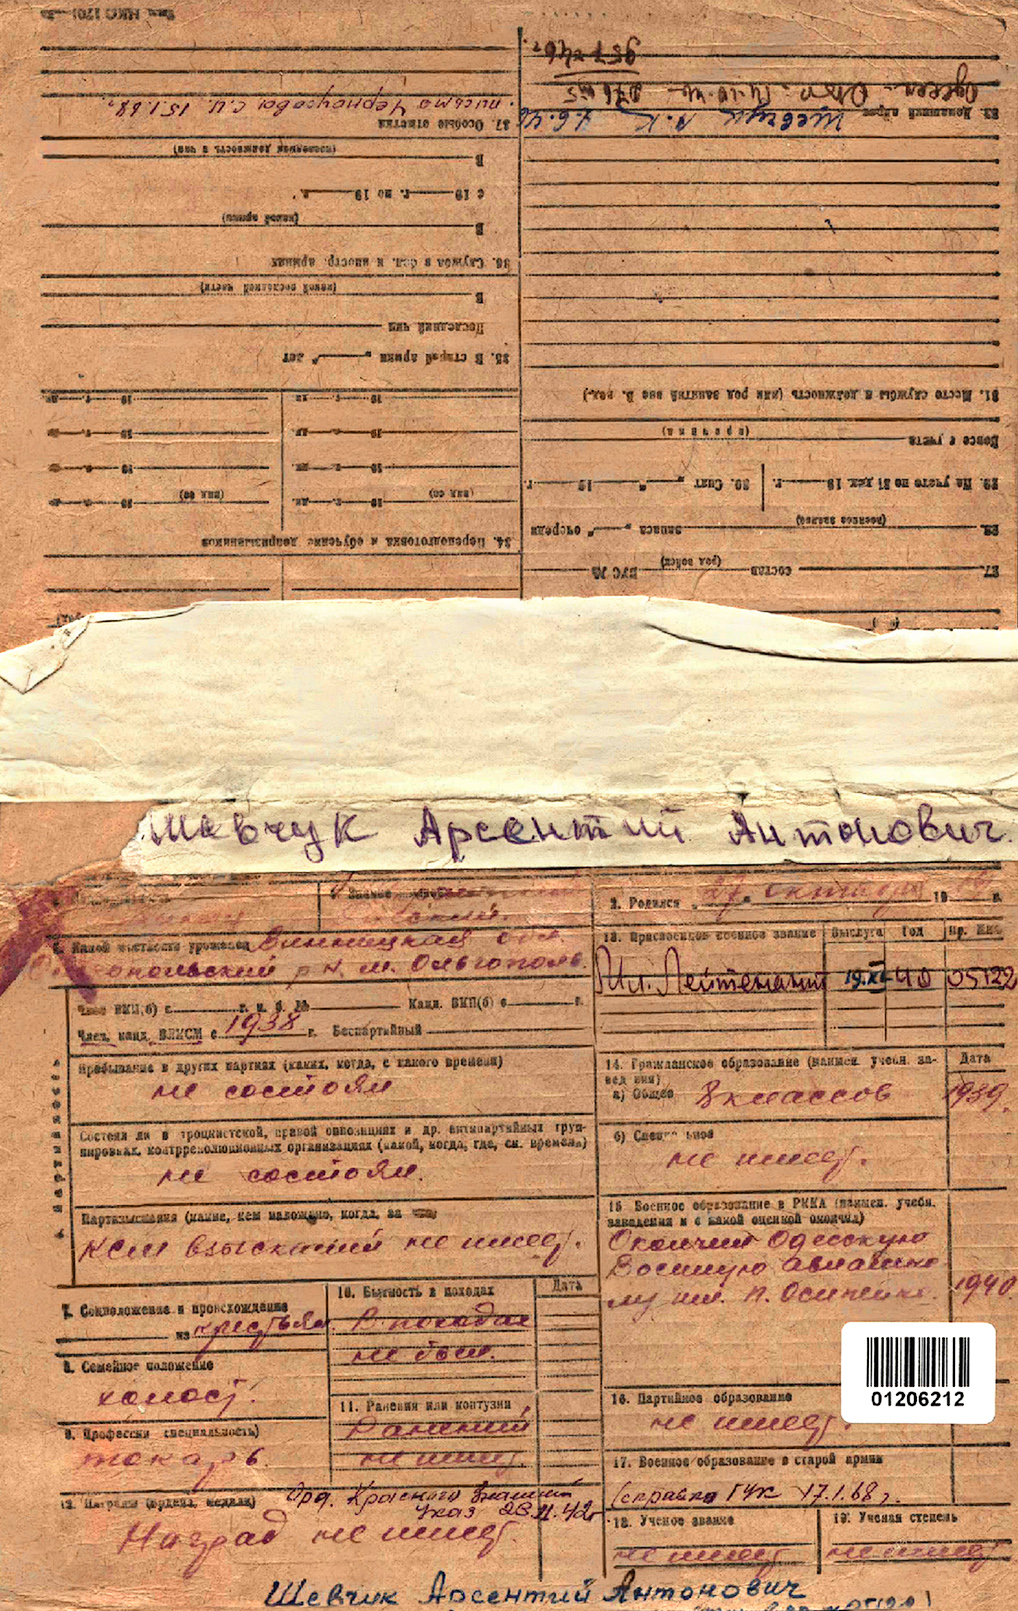 Одесса
37. Особые отметки письмо Черноусова С.И. 15.1.68г.
В
(последняя должность и чин)
с 19 г. по 19 г.
В
(какой армии)
36. Служба в бел. и иностр. армиях
В
(какой последней части)
Последний чин
35. В старой армии „ " лет
34. Переподготовка и обучение допризывников
33. Домашний адрес Шевчук А. К.
31. Место службы и должность (или род занятий вне В. вед.)
Вовсе с учета
(причина)
29. На учете по 31 дек. 19 г. 30. Снят „ " 19 г.
28. запаса „ " очереди
(военное звание)
27. состав ВУС №
(род войск)
Шевчук Арсентий Антонович
2. Родился „ 27 " октября 19 г.
5. Какой местности уроженец Винницкая обл.
Ольгопольский р-н, м. Ольгополь.
13. Присвоенное военное звание Выслуга Год Пр. НКО
Мл. Лейтенант 19.XI 40 05122
Член ВКП(б) с г. п. б. № Канд. ВКП(б) с г.
Член, канд. ВЛКСМ с 1938 г. Беспартийный
6. Партийность
Пребывание в других партиях (каких, когда, с какого времени)
не состоял
Состоял ли в троцкистской, правой оппозициях и др. антипартийных груп-
пировках, контрреволюционных организациях (какой, когда, где, см. времена)
не состоял.
Партвзыскания (какие, кем наложено, когда, за что)
КСМ взысканий не имеет.
14. Гражданское образование (наимен. учебн. за-
ведения) Дата
а) Общее 8 классов 1939.
б) Специальное
не имеет.
15 Военное образование в РККА (наимен. учебн.
заведения и с какой оценкой окончил)
Окончил Одесскую
Военную авиашко
лу им. П. Осипенко. 1940.
7. Соцположение и происхождение
из крестьян
8. Семейное положение
холост.
9. Профессия (специальность)
токарь.
10. Бытность в походах Дата
В походах
не был.
11. Ранения или контузии
Ранений
не имеет.
12. Награды (ордена, медали) Орд. Красного Знамени
Указ 23.II.42г
Наград не имеет.
01206212
16. Партийное образование
не имеет.
17. Военное образование в старой армии
(справка ГУК 17.1.68г.
18. Ученое звание
не имеет
19. Ученая степень
не имеет
Шевчук Арсентий Антонович